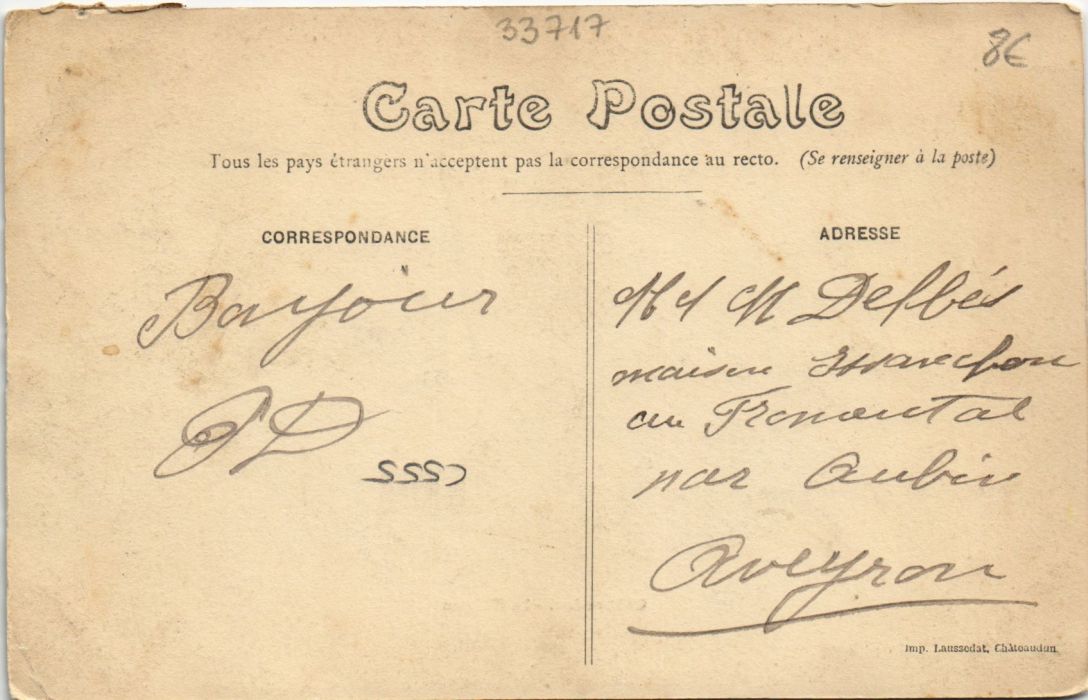 33717
8€
Carte Postale
Tous les pays étrangers n'acceptent pas la correspondance au recto. (Se renseigner à la poste)
CORRESPONDANCE
Bonjour
PD
ADRESSE
M Delbés
maison
au Fromental
par Aubin
Aveyron
Imp. Laussedat, Châteaudun